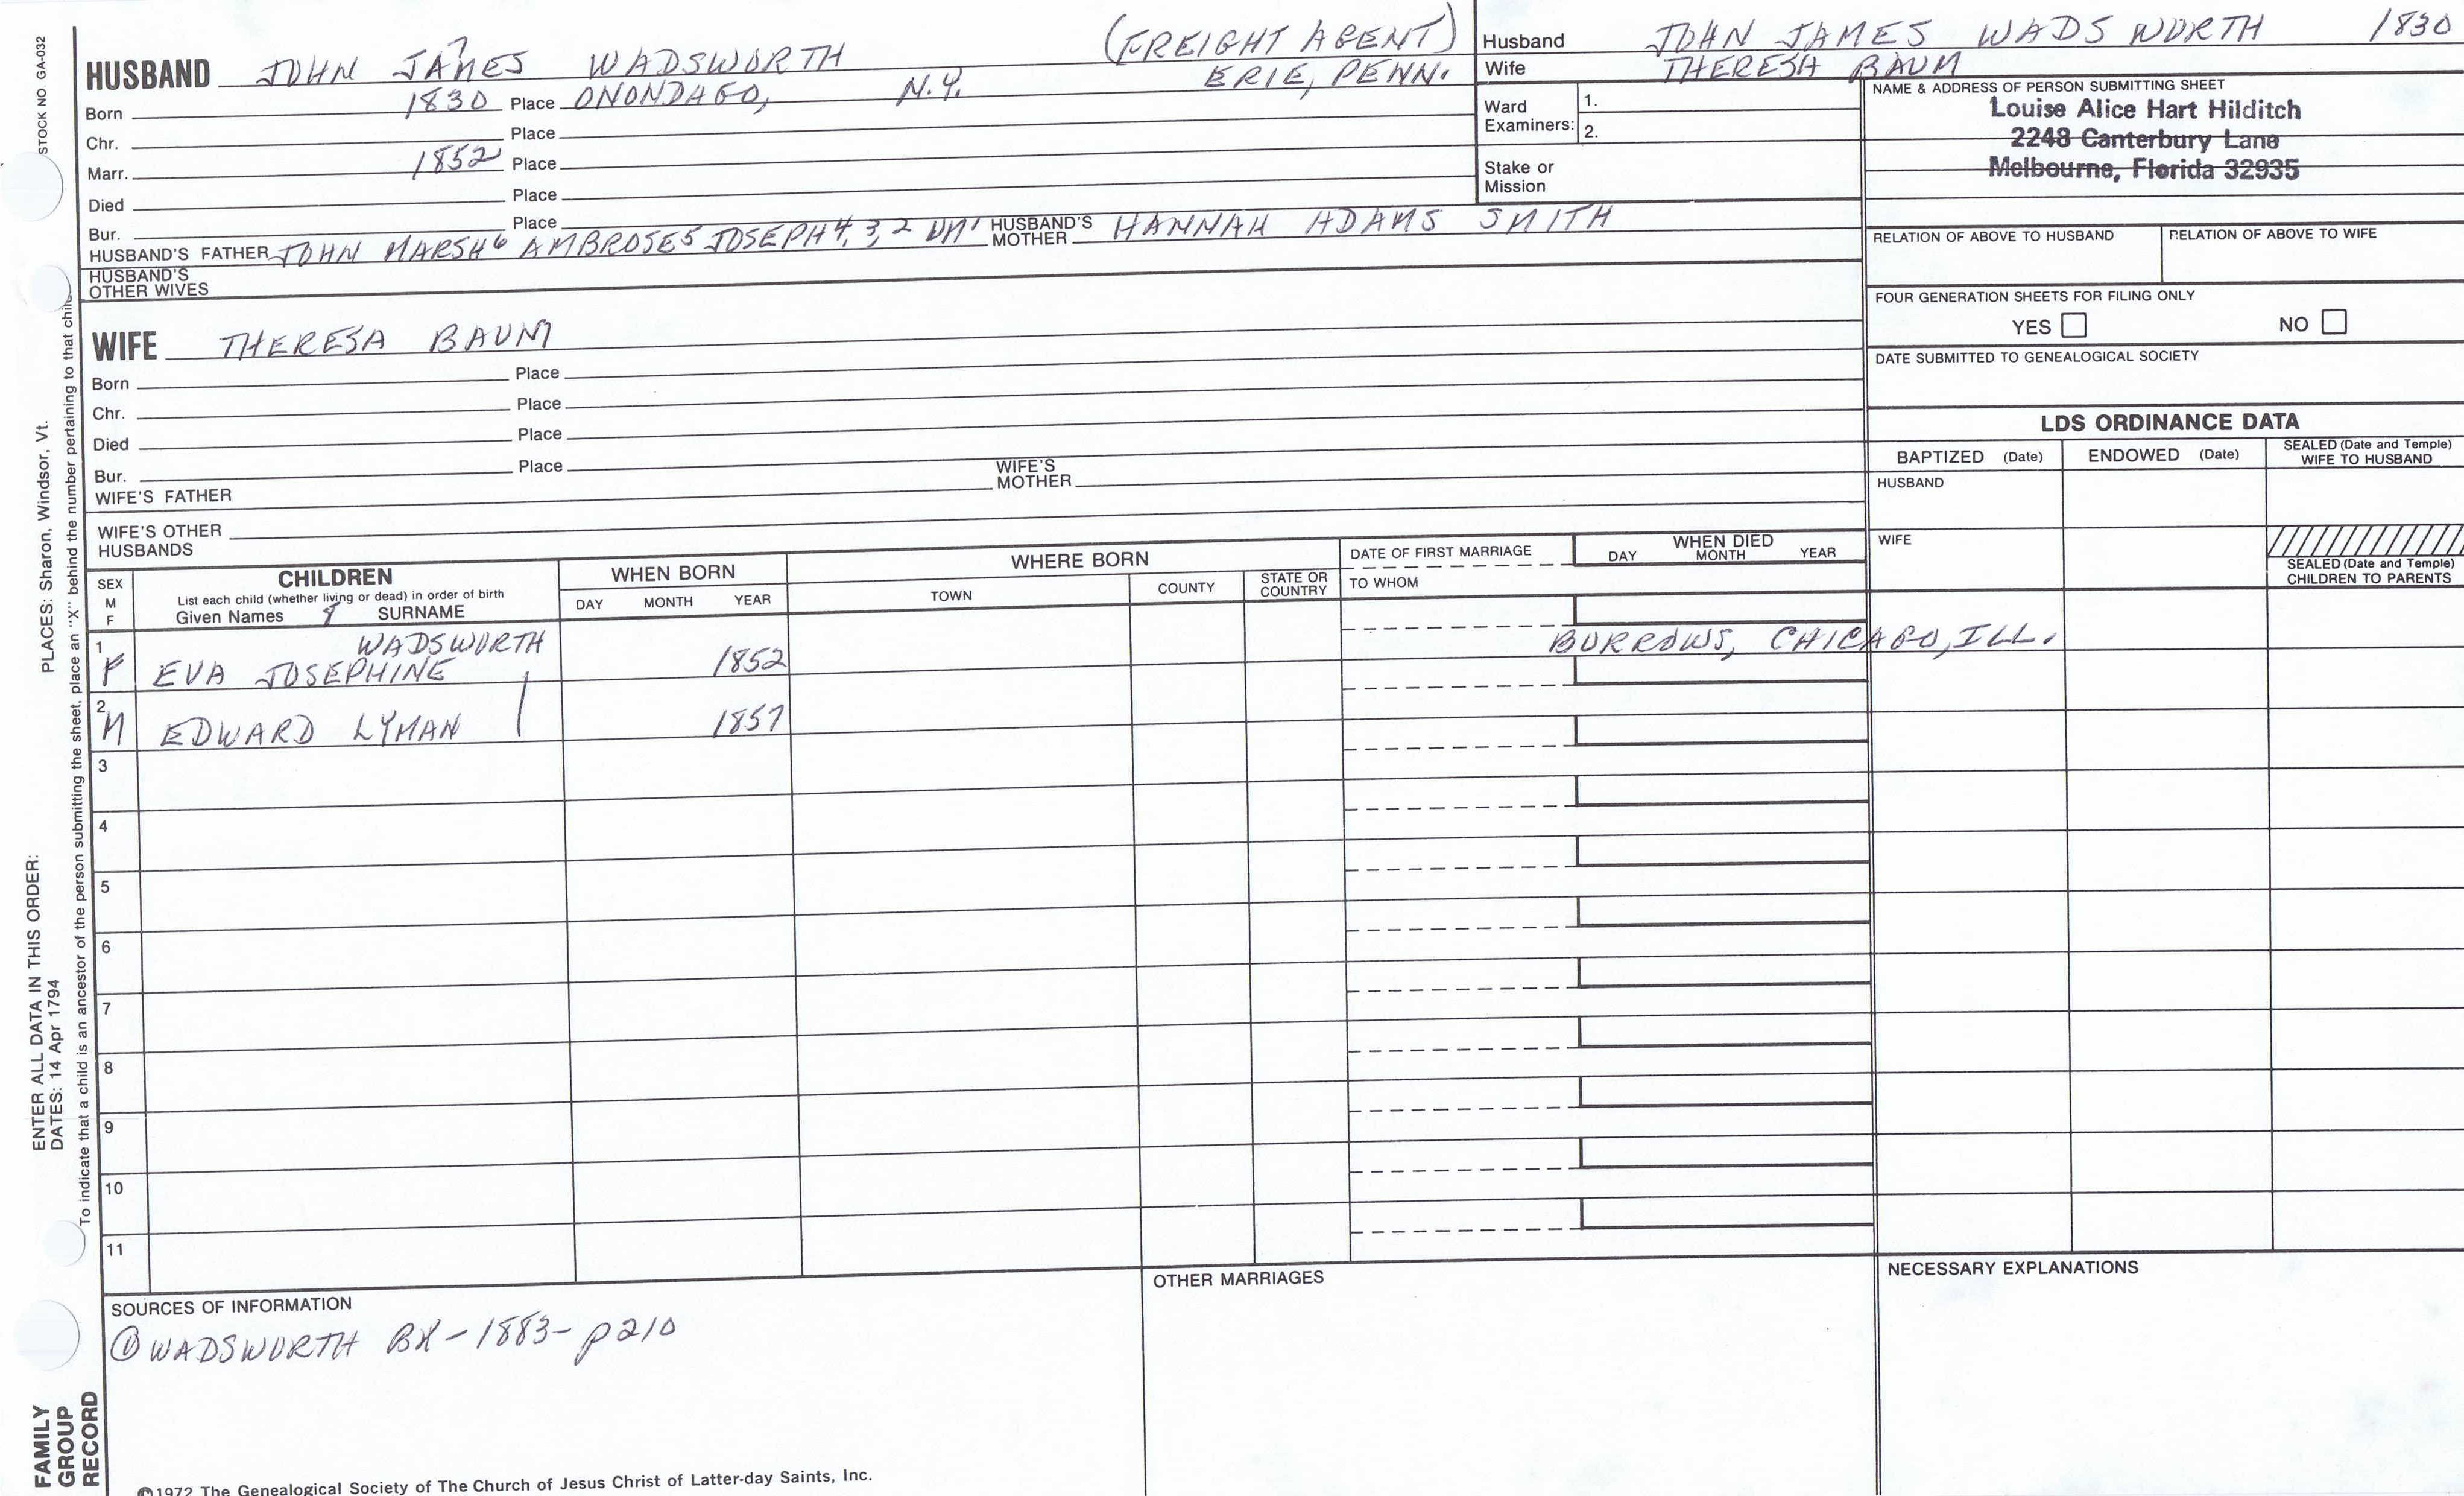 STOCK NO GA-032
HUSBAND JOHN JAMES WADSWORTH (FREIGHT AGENT)
Born 1830 Place ONONDAGO, N.Y. ERIE, PENN.
Chr. Place
Marr. 1852 Place
Died Place
Bur. Place
HUSBAND'S FATHER JOHN MARSH6 AMBROSE5 JOSEPH4,3,2 WM1 HUSBAND'S MOTHER HANNAH ADAMS SMITH
HUSBAND'S OTHER WIVES
WIFE THERESA BAUM
Born Place
Chr. Place
Died Place
Bur. Place
WIFE'S FATHER WIFE'S MOTHER
WIFE'S OTHER HUSBANDS
Husband JOHN JAMES WADSWORTH 1830
Wife THERESA BAUM
Ward Examiners: 1.
2.
Stake or Mission
NAME & ADDRESS OF PERSON SUBMITTING SHEET
Louise Alice Hart Hilditch
2248 Canterbury Lane
Melbourne, Florida 32935
RELATION OF ABOVE TO HUSBAND RELATION OF ABOVE TO WIFE
FOUR GENERATION SHEETS FOR FILING ONLY
YES NO
DATE SUBMITTED TO GENEALOGICAL SOCIETY
LDS ORDINANCE DATA
BAPTIZED (Date) ENDOWED (Date) SEALED (Date and Temple) WIFE TO HUSBAND
HUSBAND
WIFE
SEALED (Date and Temple) CHILDREN TO PARENTS
SEX M F
CHILDREN
List each child (whether living or dead) in order of birth
Given Names SURNAME
WHEN BORN
DAY MONTH YEAR
WHERE BORN
TOWN COUNTY STATE OR COUNTRY
DATE OF FIRST MARRIAGE
TO WHOM
WHEN DIED
DAY MONTH YEAR
1 F EVA JOSEPHINE WADSWORTH 1852 BURROWS, CHICAGO, ILL.
2 M EDWARD LYMAN 1857
3
4
5
6
7
8
9
10
11
SOURCES OF INFORMATION
① WADSWORTH BK-1883-p210
OTHER MARRIAGES
NECESSARY EXPLANATIONS
©1972 The Genealogical Society of The Church of Jesus Christ of Latter-day Saints, Inc.
FAMILY
GROUP
RECORD
ENTER ALL DATA IN THIS ORDER:
DATES: 14 Apr 1794
PLACES: Sharon, Windsor, Vt.
To indicate that a child is an ancestor of the person submitting the sheet, place an "X" behind the number pertaining to that child.